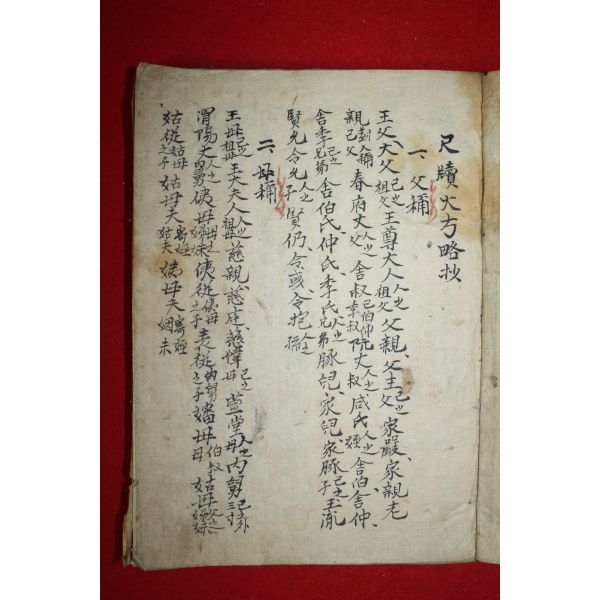 尺牘大方略抄
一、父稱
王父、大父己之祖父王尊大人人之祖父父親、父主己之父家嚴、家親、老
親對人稱己父春府丈人之父舍叔己伯仲季叔阮丈人之叔咸氏人之姪舍伯、舍仲、
舍季己之兄弟舍伯氏、仲氏、季氏人之兄弟豚兒、家兒、家豚己之子玉胤
賢允、令允人之子賢仍、令彧、令抱人之孫
二、母稱
王母己之祖母王大夫人人之祖母慈親、慈庭、慈幃己之母萱堂人之母內舅己之外三寸
渭陽丈人之內舅姨母母之姊妹姨從姨母之子表從內舅之子嬸母伯叔母姑母
姑從姑母之子姑母夫姑夫姨母夫